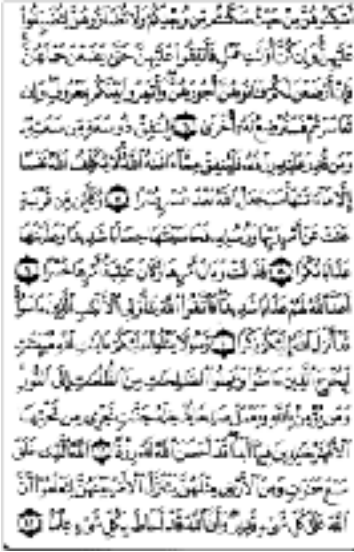 أَسْكِنُوهُنَّ مِنْ حَيْثُ سَكَنتُم مِّن وُجْدِكُمْ وَلَا تُضَارُّوهُنَّ لِتُضَيِّقُوا۟
عَلَيْهِنَّ وَإِن كُنَّ أُو۟لَٰتِ حَمْلٍ فَأَنفِقُوا۟ عَلَيْهِنَّ حَتَّىٰ يَضَعْنَ حَمْلَهُنَّ
فَإِنْ أَرْضَعْنَ لَكُمْ فَـَٔاتُوهُنَّ أُجُورَهُنَّ وَأْتَمِرُوا۟ بَيْنَكُم بِمَعْرُوفٍ وَإِن
تَعَاسَرْتُمْ فَسَتُرْضِعُ لَهُۥٓ أُخْرَىٰ ٦ لِيُنفِقْ ذُو سَعَةٍ مِّن سَعَتِهِۦ
وَمَن قُدِرَ عَلَيْهِ رِزْقُهُۥ فَلْيُنفِقْ مِمَّآ ءَاتَىٰهُ ٱللَّهُ لَا يُكَلِّفُ ٱللَّهُ نَفْسًا
إِلَّا مَآ ءَاتَىٰهَا سَيَجْعَلُ ٱللَّهُ بَعْدَ عُسْرٍ يُسْرًا ٧ وَكَأَيِّن مِّن قَرْيَةٍ
عَتَتْ عَنْ أَمْرِ رَبِّهَا وَرُسُلِهِۦ فَحَاسَبْنَٰهَا حِسَابًا شَدِيدًا وَعَذَّبْنَٰهَا
عَذَابًا نُّكْرًا ٨ فَذَاقَتْ وَبَالَ أَمْرِهَا وَكَانَ عَٰقِبَةُ أَمْرِهَا خُسْرًا ٩
أَعَدَّ ٱللَّهُ لَهُمْ عَذَابًا شَدِيدًا فَٱتَّقُوا۟ ٱللَّهَ يَٰٓأُو۟لِى ٱلْأَلْبَٰبِ ٱلَّذِينَ ءَامَنُوا۟
قَدْ أَنزَلَ ٱللَّهُ إِلَيْكُمْ ذِكْرًا ١٠ رَّسُولًا يَتْلُوا۟ عَلَيْكُمْ ءَايَٰتِ ٱللَّهِ مُبَيِّنَٰتٍ
لِّيُخْرِجَ ٱلَّذِينَ ءَامَنُوا۟ وَعَمِلُوا۟ ٱلصَّٰلِحَٰتِ مِنَ ٱلظُّلُمَٰتِ إِلَى ٱلنُّورِ
وَمَن يُؤْمِنۢ بِٱللَّهِ وَيَعْمَلْ صَٰلِحًا يُدْخِلْهُ جَنَّٰتٍ تَجْرِى مِن تَحْتِهَا
ٱلْأَنْهَٰرُ خَٰلِدِينَ فِيهَآ أَبَدًا قَدْ أَحْسَنَ ٱللَّهُ لَهُۥ رِزْقًا ١١ ٱللَّهُ ٱلَّذِى خَلَقَ
سَبْعَ سَمَٰوَٰتٍ وَمِنَ ٱلْأَرْضِ مِثْلَهُنَّ يَتَنَزَّلُ ٱلْأَمْرُ بَيْنَهُنَّ لِتَعْلَمُوٓا۟ أَنَّ
ٱللَّهَ عَلَىٰ كُلِّ شَىْءٍ قَدِيرٌ وَأَنَّ ٱللَّهَ قَدْ أَحَاطَ بِكُلِّ شَىْءٍ عِلْمًۢا ١٢